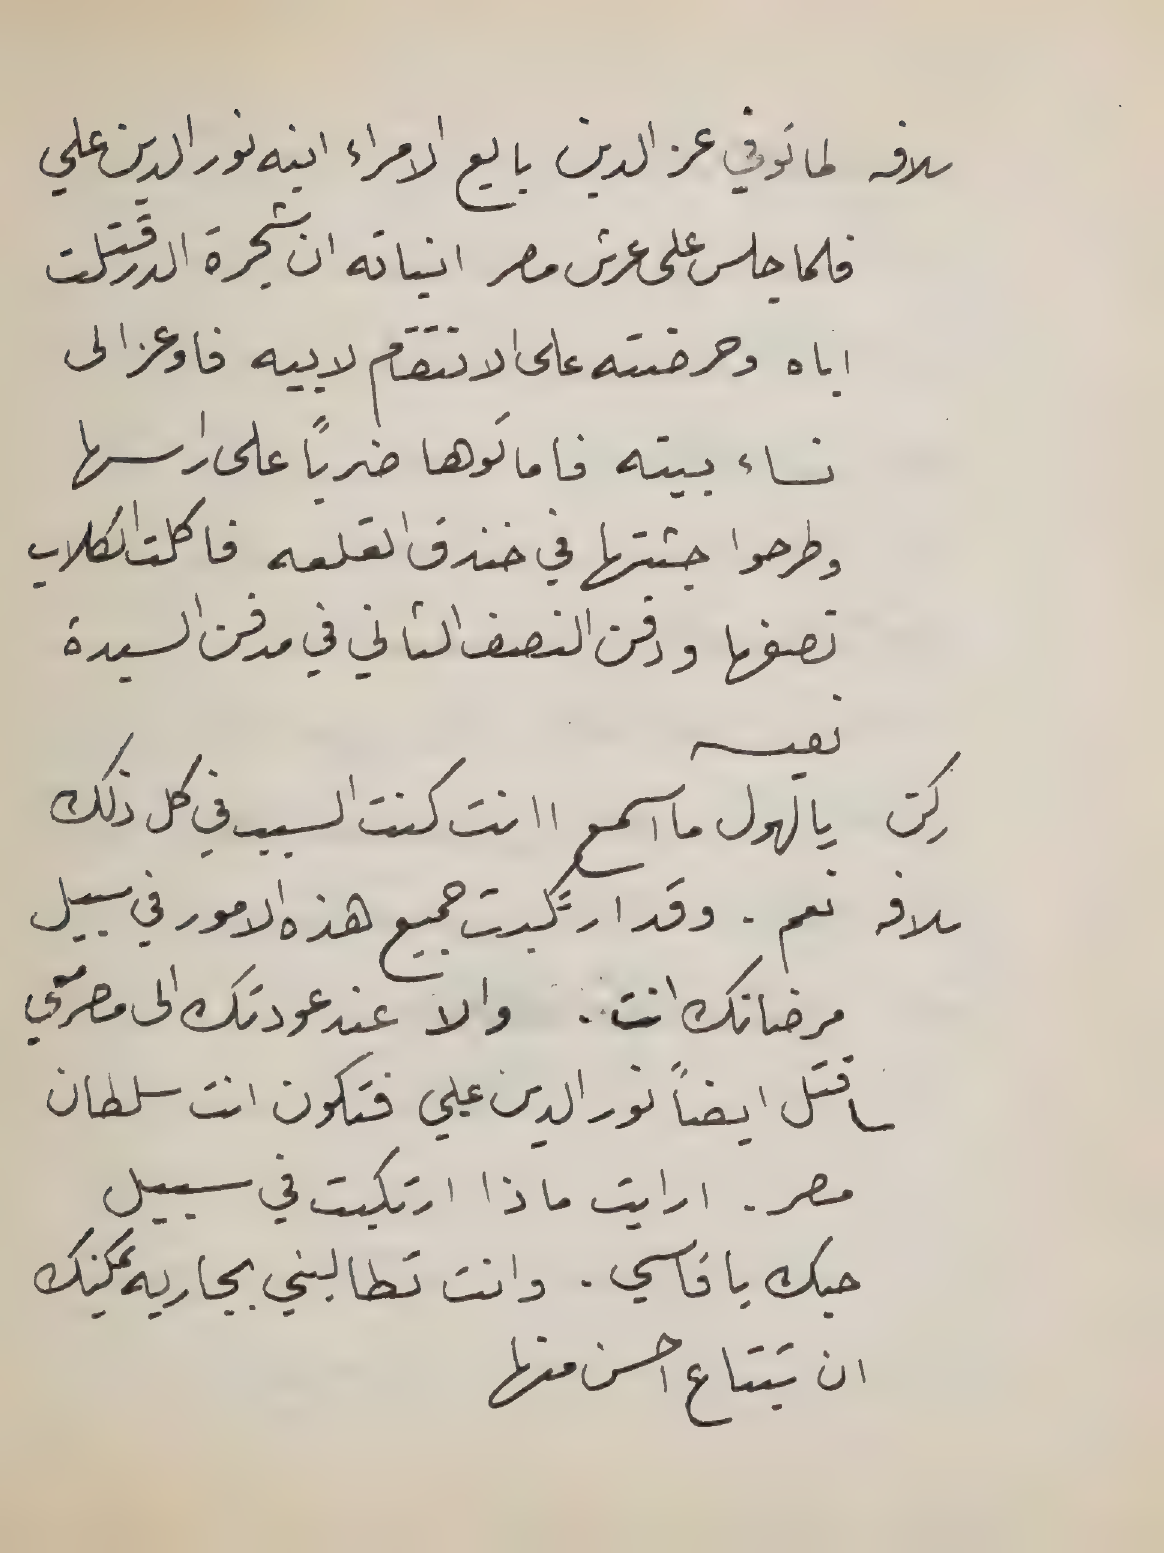 سلافه لما توفي عز الدين بايع الامراء ابنه نور الدين علي
فلما جلس على عرش مصر انباته ان شجرة الدر قتلت
اباه وحرضته على الانتقام لابيه فاوعز الى
نساء بيته فاماتوها ضربًا على راسها
وطرحوا جثتها في خندق القلعه فاكلت الكلاب
نصفها ودفن النصف الثاني في مدفن السيدة
نفيسه
ركن يا لهول ما اسمع اانت كنت السبب في كل ذلك
سلافه نعم . وقد ارتكبت جميع هذه الامور في سبيل
مرضاتك انت . والا عند عودتك الى مصر
ساقتل ايضاً نور الدين علي فتكون انت سلطان
مصر . ارايت ماذا ارتكبت في سبيل
حبك يا قاسي . وانت تطالبني بجاريه يمكنك
ان تبتاع احسن منها